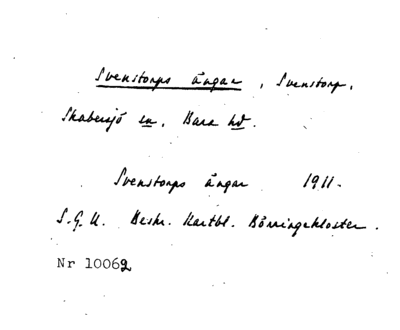 Svenstorps ängar, Svenstorp,
Skabersjö sn, Bara hd.
Svenstorps ängar 1911.
S.G.U. Beskr. Kartbl. Börringekloster.
Nr 10062